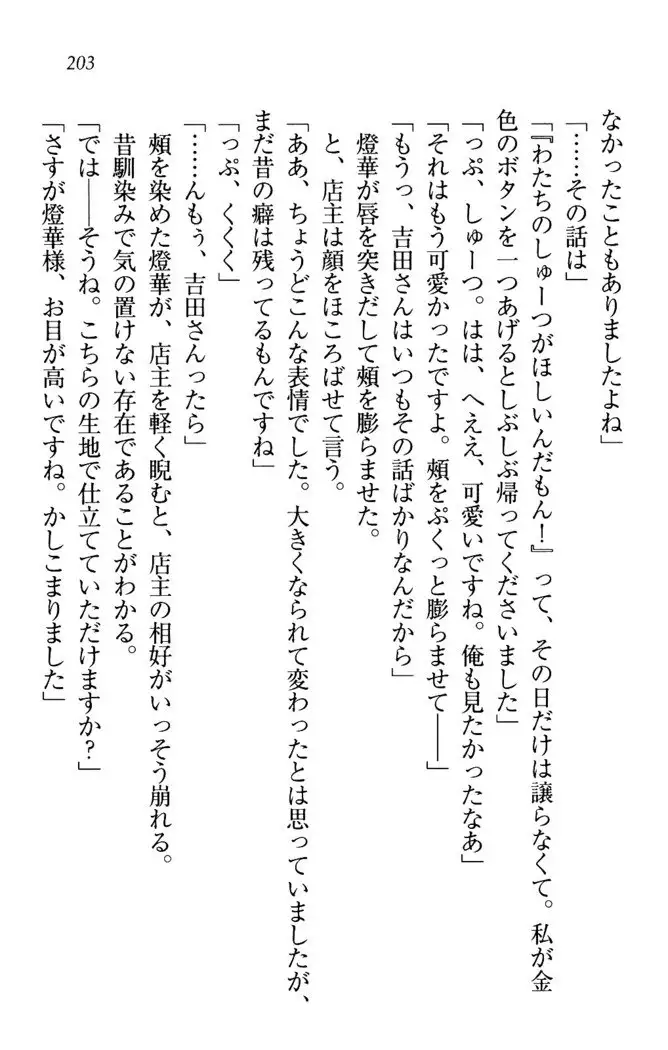 203
なかったこともありましたよね」
「……その話は」
「『わたちのしゅーつがほしいんだもん！』って、その日だけは譲らなくて。私が金
色のボタンを一つあげるとしぶしぶ帰ってくださいました」
「っぷ、しゅーつ。はは、へええ、可愛いですね。俺も見たかったなあ」
「それはもう可愛かったですよ。頰をぷくっと膨らませて――」
「もうっ、吉田さんはいつもその話ばかりなんだから」
燈華が唇を突きだして頰を膨らませた。
と、店主は顔をほころばせて言う。
「ああ、ちょうどこんな表情でした。大きくなられて変わったとは思っていましたが、
まだ昔の癖は残ってるもんですね」
「っぷ、くくく」
「……んもぅ、吉田さんったら」
頰を染めた燈華が、店主を軽く睨むと、店主の相好がいっそう崩れる。
昔馴染みで気の置けない存在であることがわかる。
「では――そうね。こちらの生地で仕立てていただけますか？」
「さすが燈華様、お目が高いですね。かしこまりました」